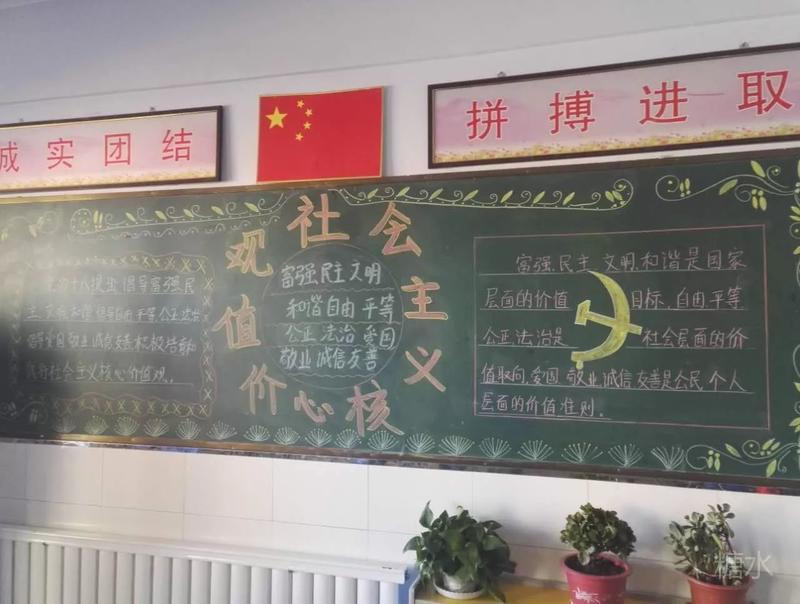 诚实团结
拼搏进取
社会主义核心价值观
富强民主文明
和谐自由平等
公正法治爱国
敬业诚信友善
十八提出倡导富强民
主文明和谐倡导自由平等公正法治
倡导爱国敬业诚信友善积极培育和
践行社会主义核心价值观。
富强、民主、文明、和谐是国家
层面的价值目标，自由、平等
公正、法治是社会层面的价
值取向，爱国、敬业、诚信友善是公民个人
层面的价值准则。
糖水